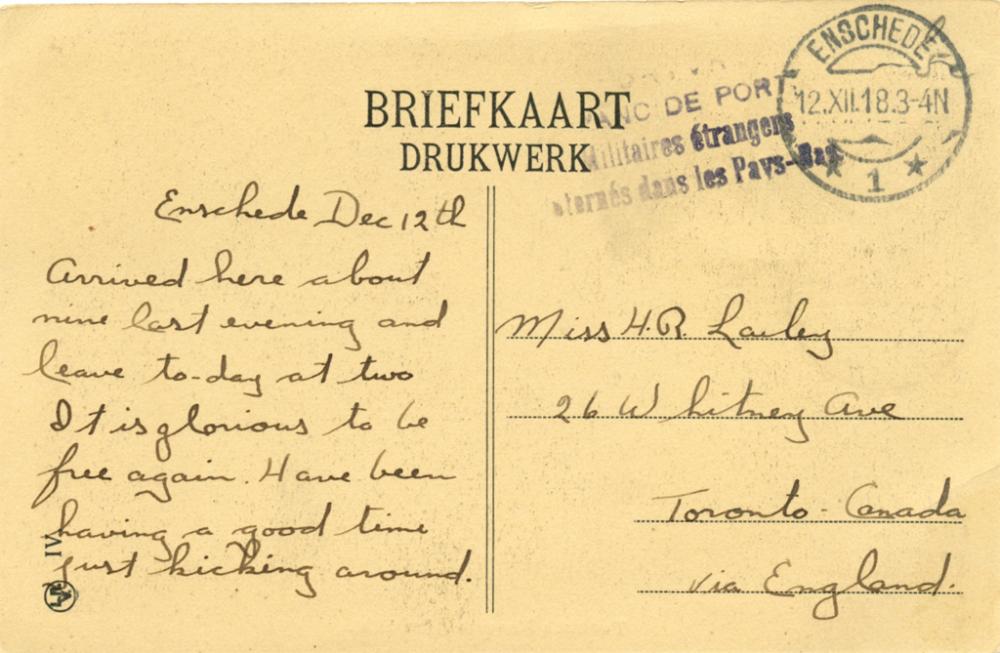 BRIEFKAART
DRUKWERK
ENSCHEDE
12.XII.18.3-4N
1
DE PORT
Militaires étrangers
internés dans les Pays-Bas
Enschede Dec 12th
Arrived here about
nine last evening and
leave to-day at two
It is glorious to be
free again. Have been
having a good time
just kicking around.
IV
Miss H.R. Lailey
26 Whitney Ave
Toronto - Canada
via England.